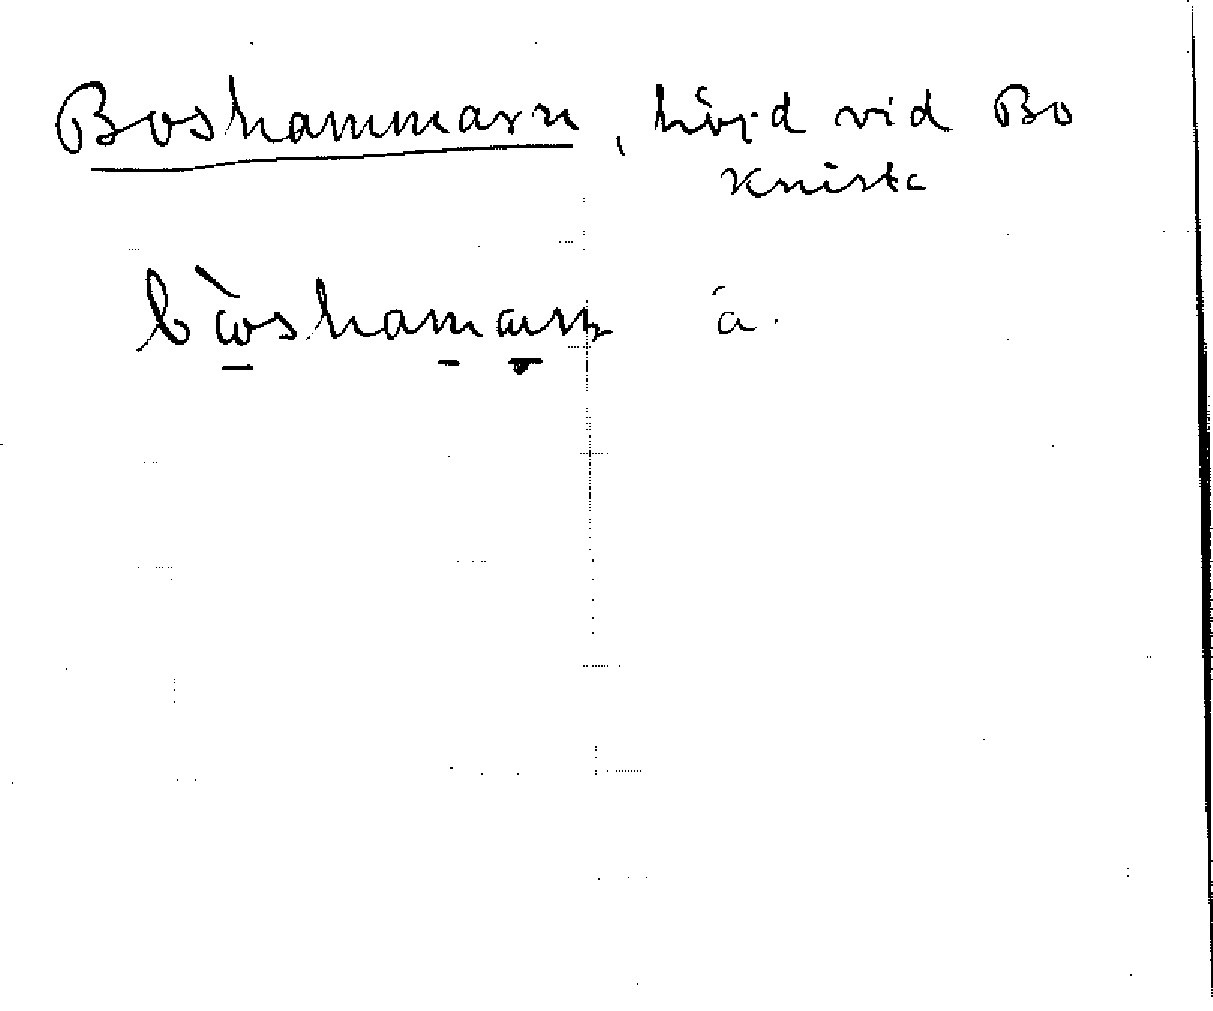 Boshammarn, höjd vid Bo
Knista
bòshamarn å.